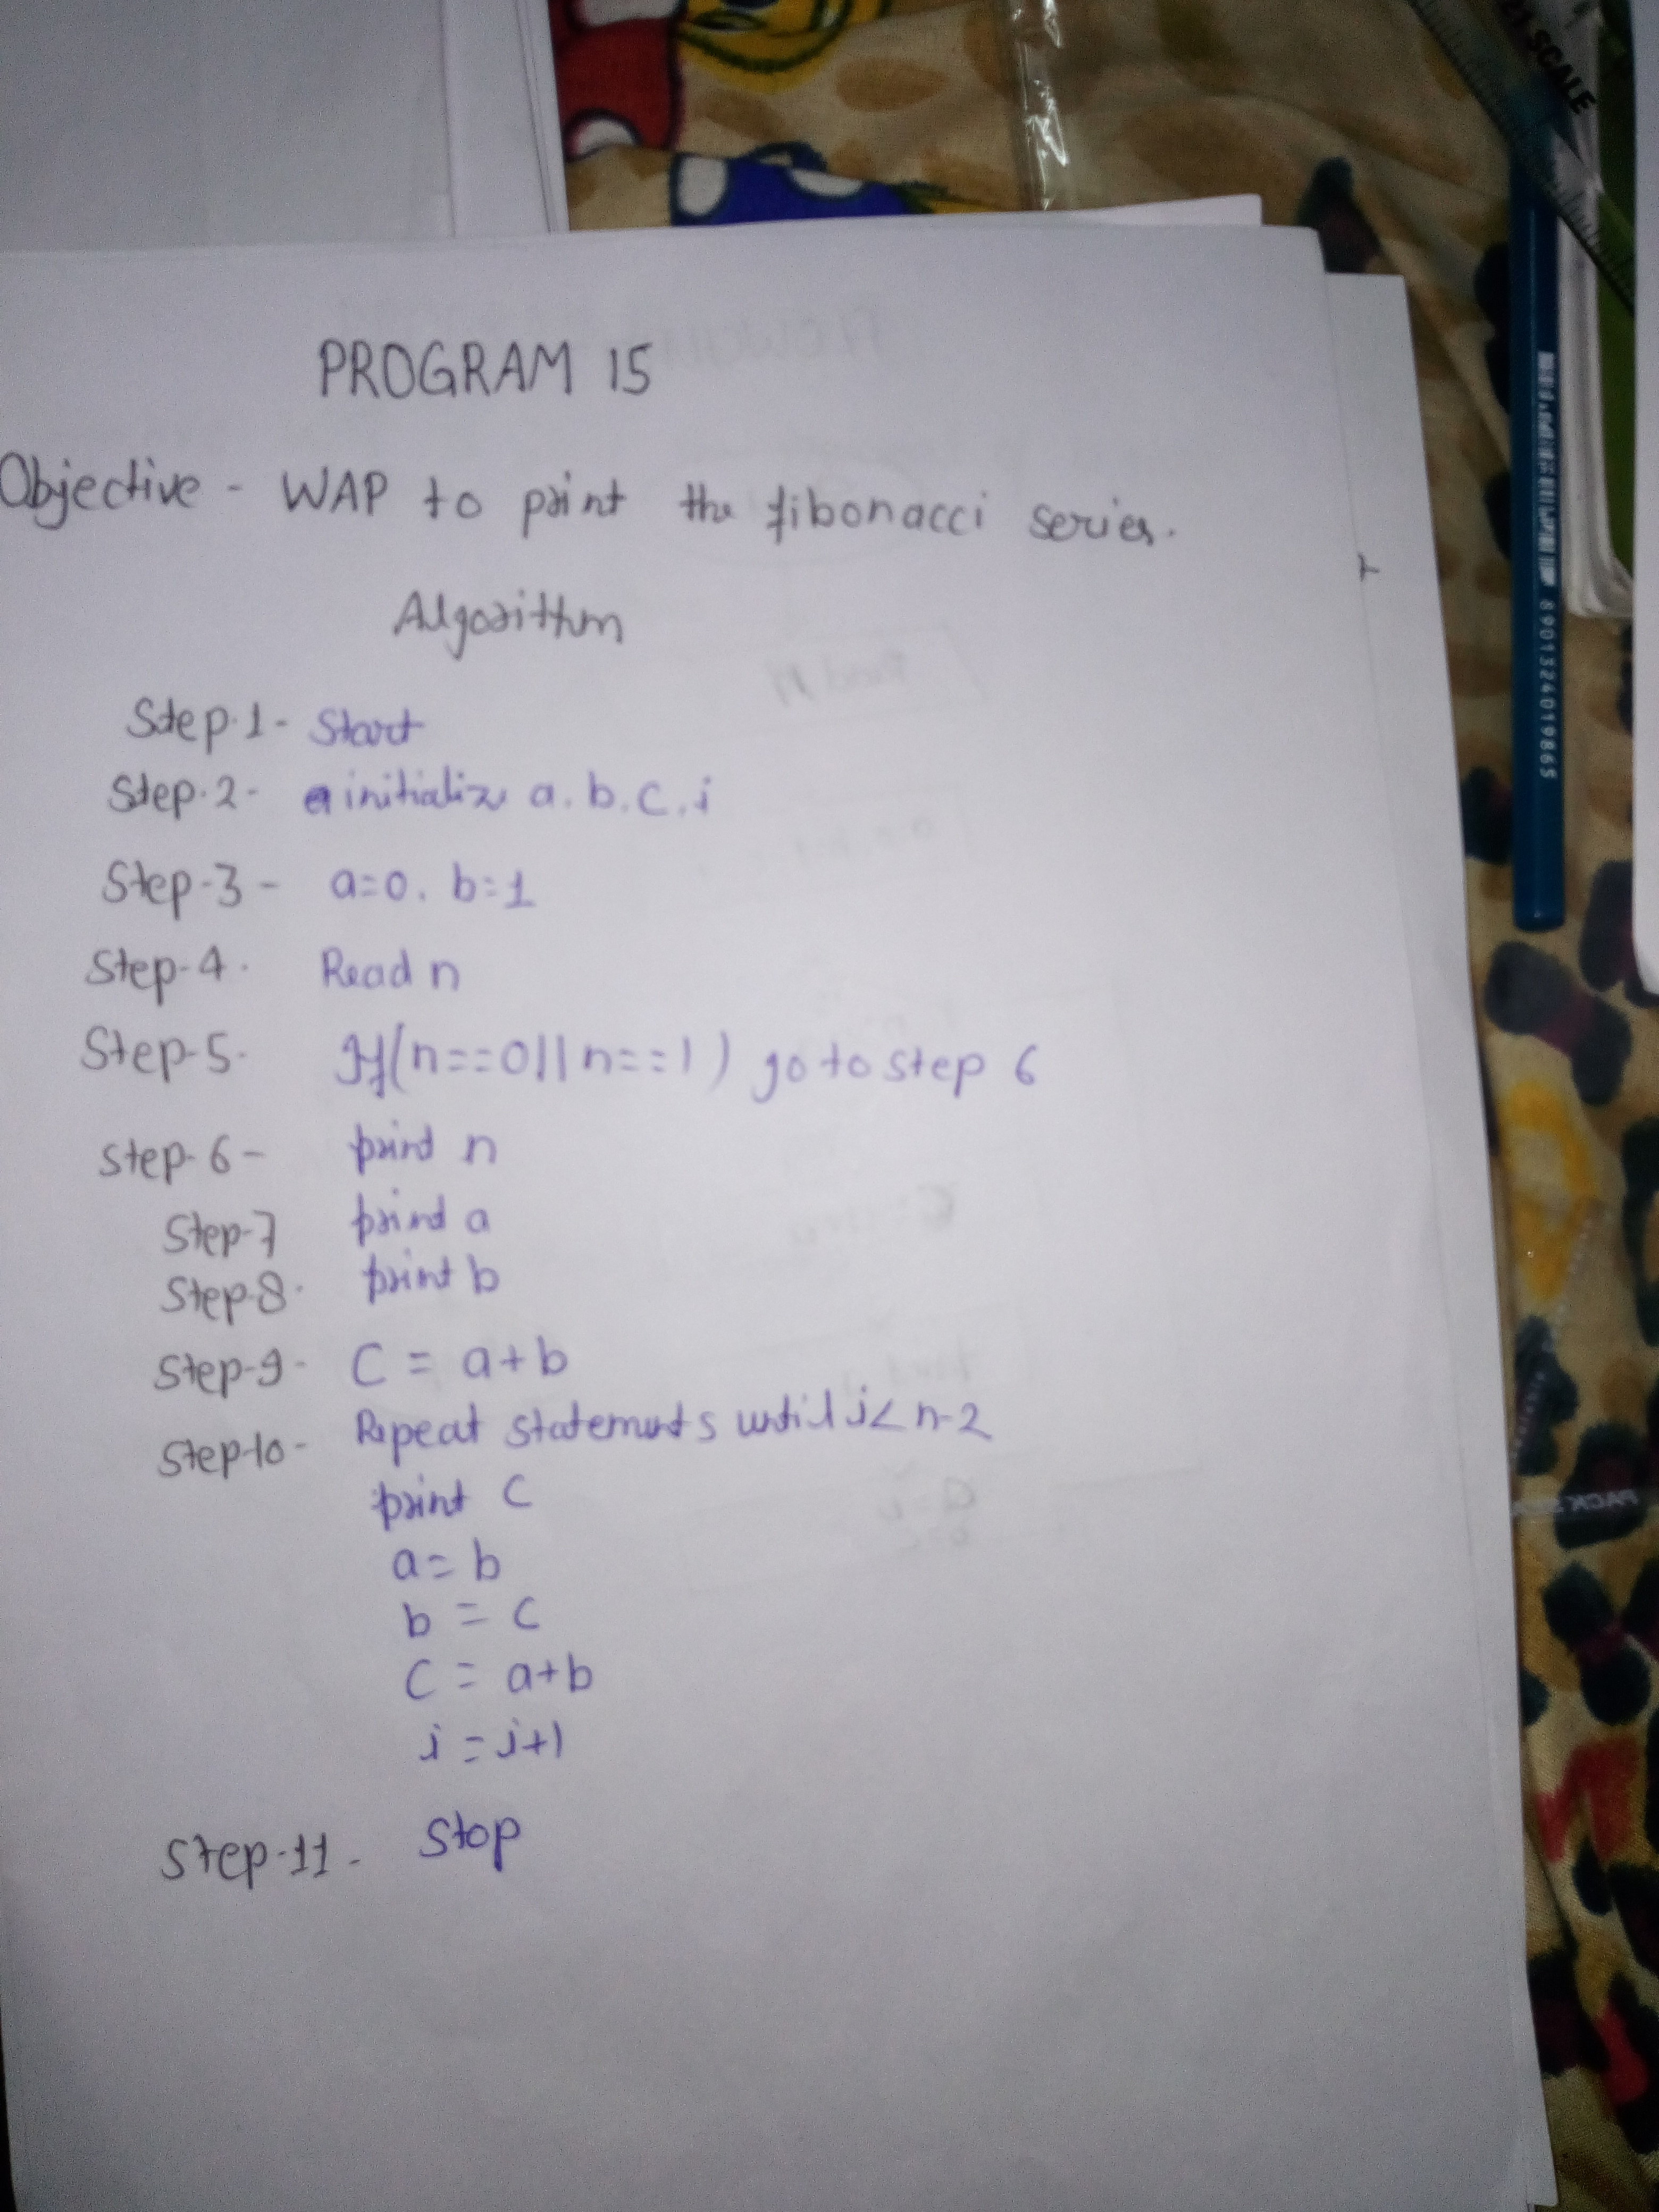 21 SCALE
PROGRAM 15
Objective - WAP to print the fibonacci series.
Algorithm
Step-1- Start
Step-2- initialize a, b, c, i
Step-3- a=0, b=1
Step-4- Read n
Step-5- If(n==0||n==1) go to step 6
Step-6- print n
Step-7 print a
Step-8- print b
Step-9- C = a+b
Step-10- Repeat statements until i< n-2
print C
a= b
b = c
C = a+b
i = i+1
Step-11- Stop
8901324019865
PACK